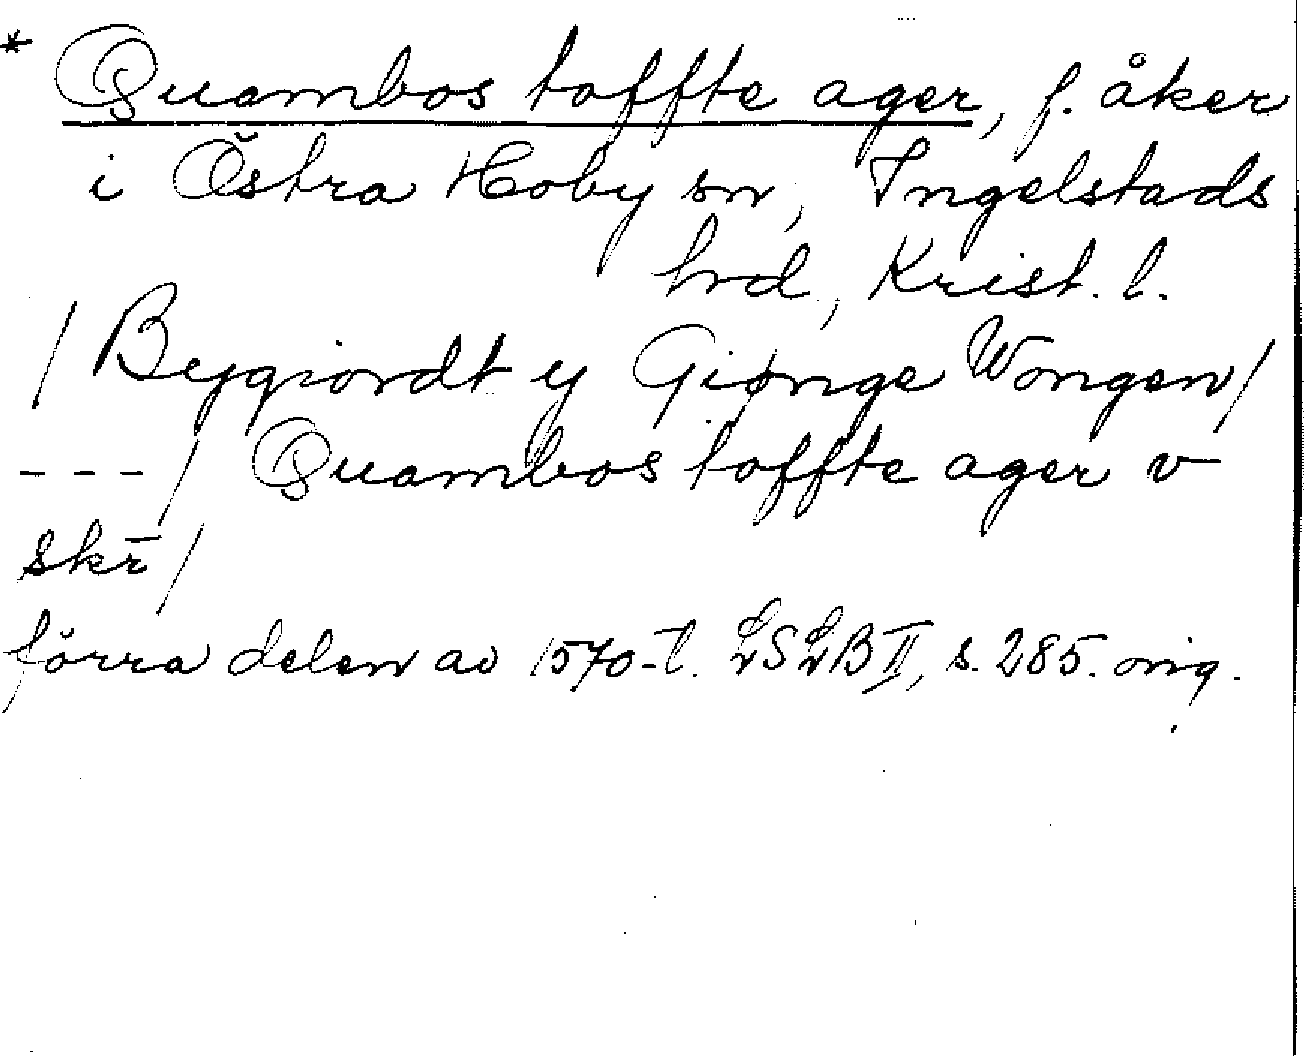 * Quambos toffte ager, f. åker
i Östra Hoby sn, Ingelstads
hrd, Krist. l.
/ Bygiordt y Giønge Wongen /
--- / Quambos toffte ager v
skr̄ /
förra delen av 1570-t. LSLB II, s. 285. orig.